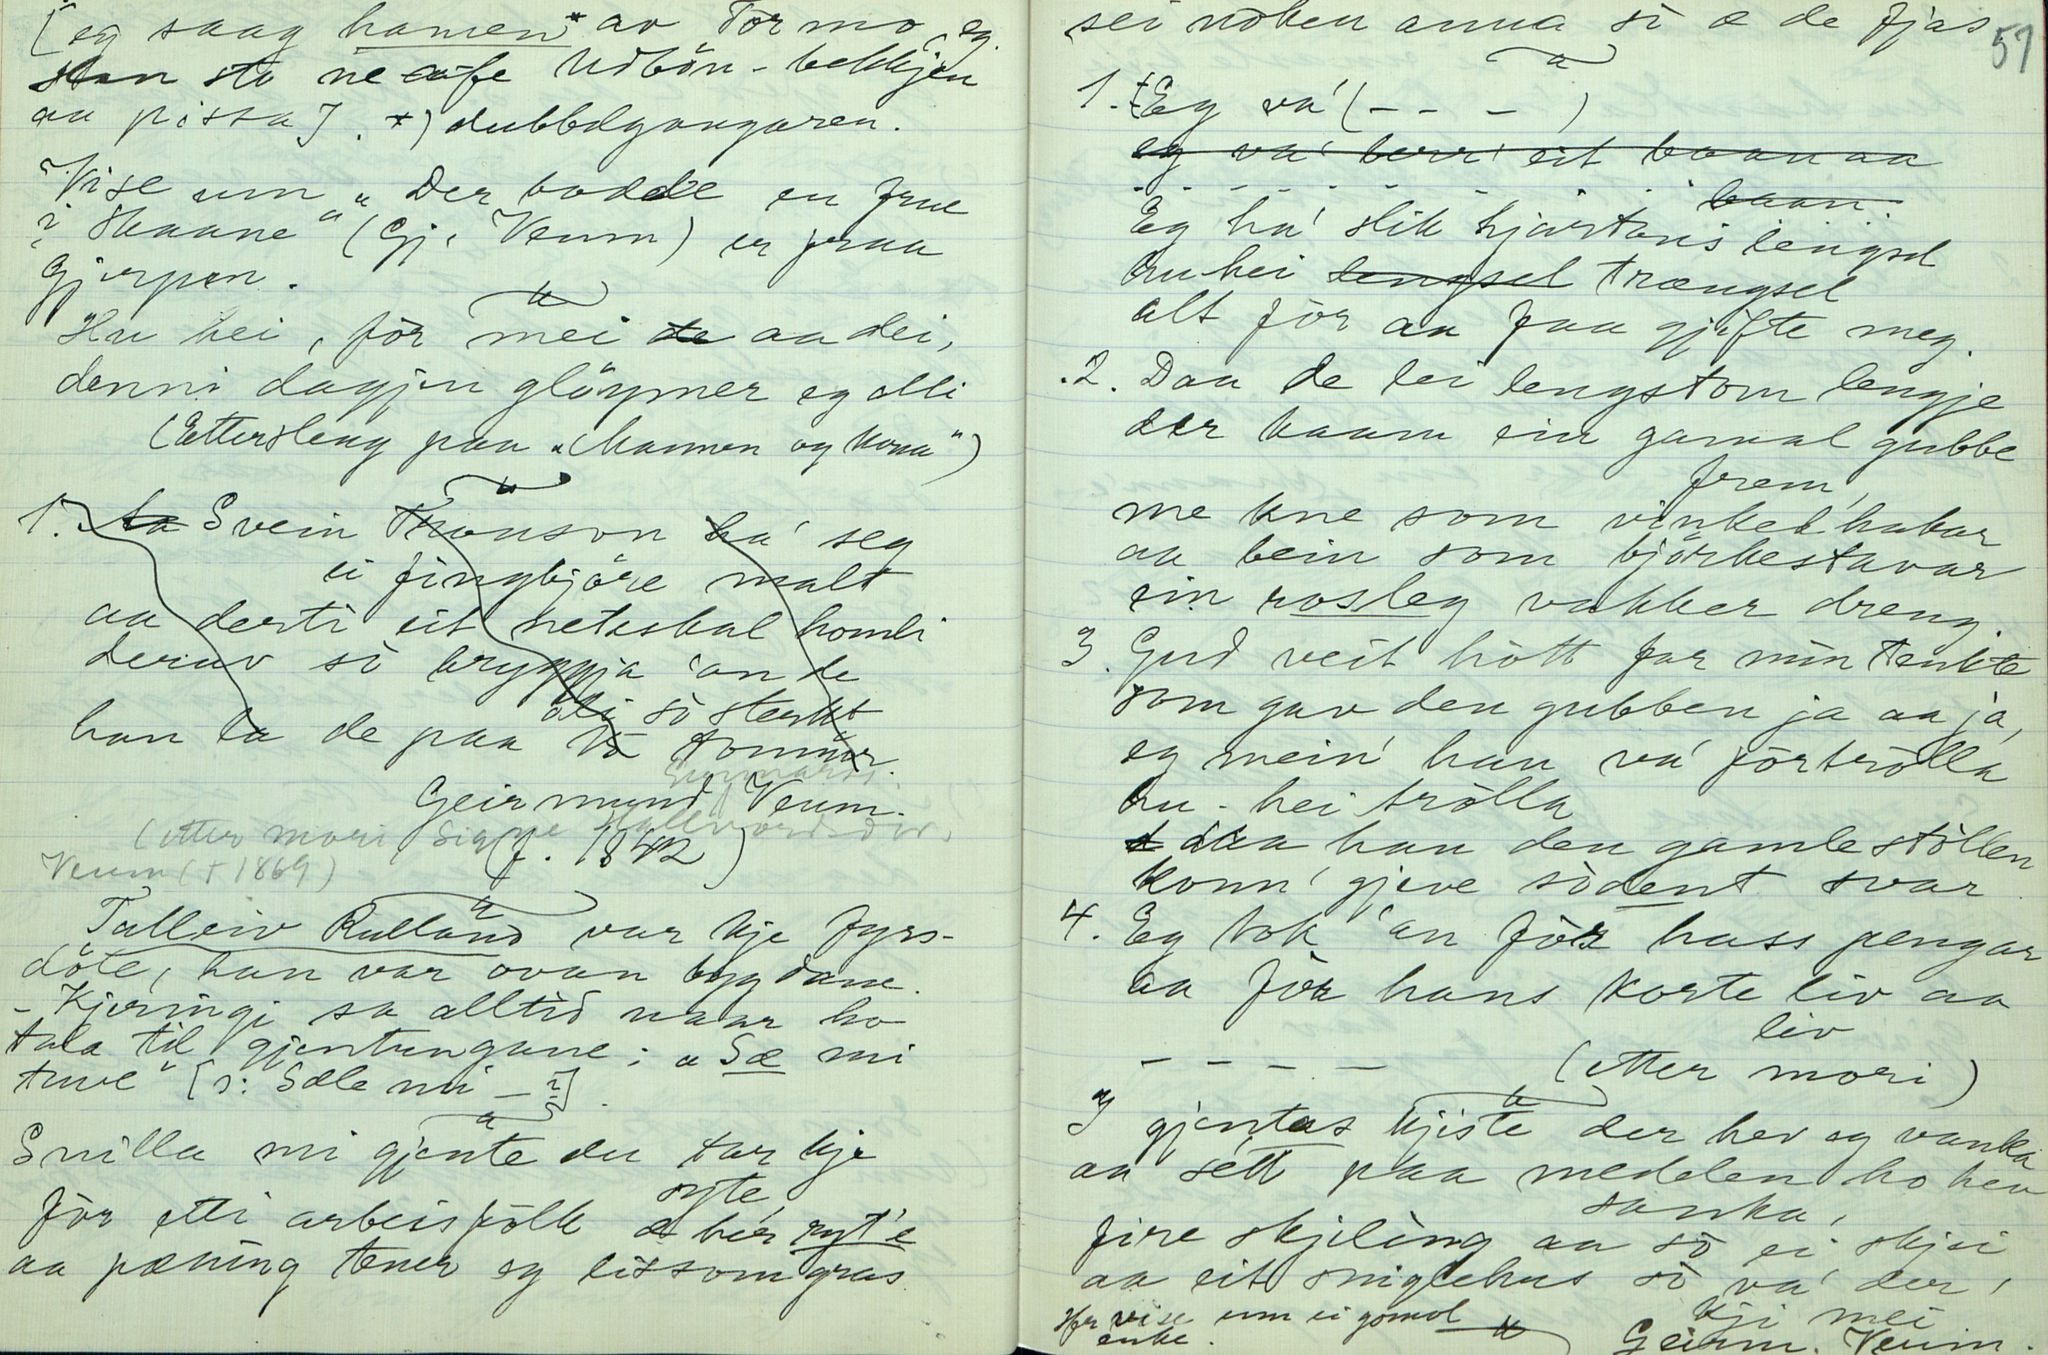 [eg saag hamen* av Tormo, eg.
stan sto ne afe Udbön-bekkjen
aa pissa]. *) dubbelgangaren.
Vise um "Der bodde en frue
i Skaane" (Gj. Veum) er fraa
Gjerpen.
Hu hei, för mei de aa dei,
denni dagjen glöymer eg alli
(Ettersleng paa "Mannen og kona")
1. ha Svein Tronson ha' seg
ei fingbjöre malt
aa derti eit neteskal homli
derav sò bryggja 'an de
öli sò sterkt
han la de paa tò tonnur.
Gunnarss.
Geirmund Veum.
(etter mori Signe Hallvordsdtr.
(f. 1842)
Veum († 1869)
Talleiv Rulland var kje fyrs-
döte, han var ovan bygdane.
- Kjeringi sa alltid naar ho
tala til gjentungane: "Sæ mi
tuve" [ɔ: Sæle mi - ?].
Snilla mi gjente du tar kje
syte
för etti arbeisfolk æ her ryt'e
aa pæning tener eg lissom gras
57
sei noken anna sò æ de fjas
1. Eg va' (- - - )
eg va' berr' eit baan aa
- - - - - - - - baan
Eg ha' slik hjartans lengsel
hu hei lengsel trængsel
alt för aa faa gjifte meg.
2. Daa de lei lengstom lengje
der kaam ein gamal gubbe
frem,
me kne som vinkelhakar
aa bein som björkestavar
ein rosleg vakker dreng.
3. Gud veit hòtt far min tenkte
som gav den gubben ja aa ja,
eg mein' han va' förtrölla
hu-hei trölla
daa han den gamle stöllen
konn' gjeve sòdent svar
4. Eg tok 'an för hass pengar
aa för hans korte liv aa
liv
- - - - (etter mori)
I gjentas kjiste der hev eg vanka
aa sétt paa medelen ho hev
sanka,
fire skjiling aa sò ei skjei
aa eit sniglehus sò va' der,
kji mei
Hfr vise um ei gomol
enke.
Geirm. Veum.